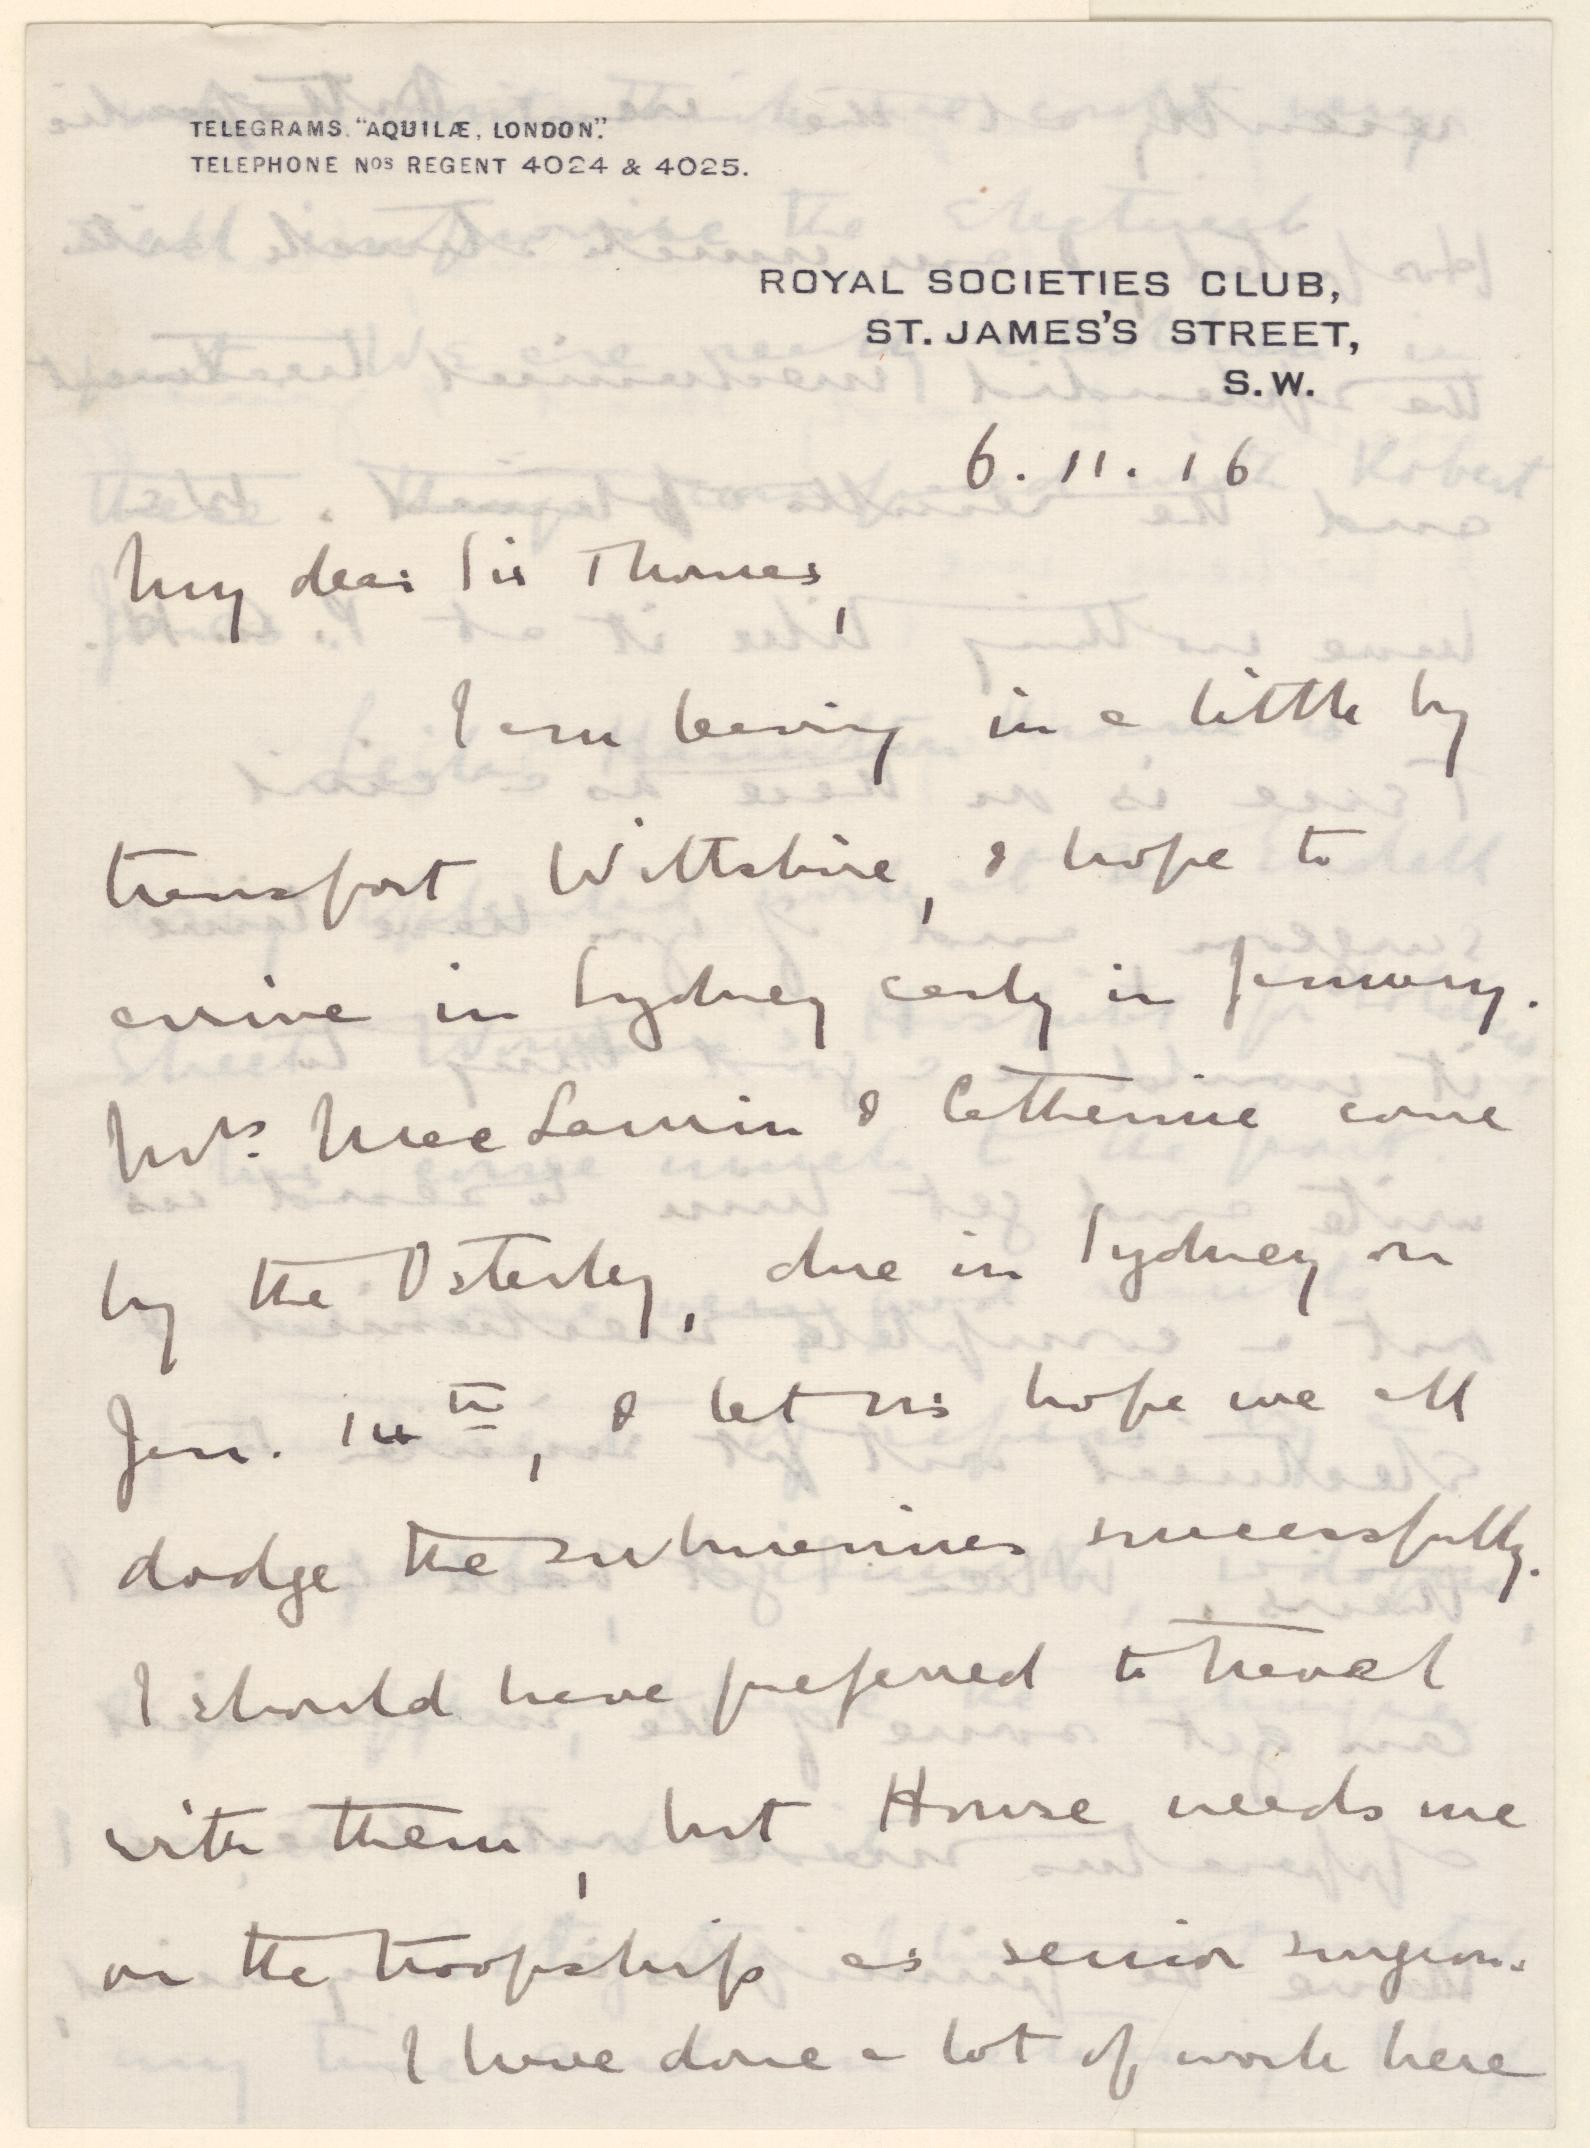 TELEGRAMS. "AQUILÆ, LONDON".
TELEPHONE Nos REGENT 4024 & 4025.
ROYAL SOCIETIES CLUB,
ST. JAMES'S STREET,
S.W.
6.11.16
My dear Sir Thomas,
I am leaving in a little by
transport Wiltshire, & hope to
arrive in Sydney early in January.
Mrs. MacLaurin & Catherine come
by the Osterley, due in Sydney on
Jan. th, & let us hope we all
dodge the submarines successfully.
I should have preferred to travel
with them, but Howse needs me
on the troopship as senior surgeon.
I have done a lot of work here